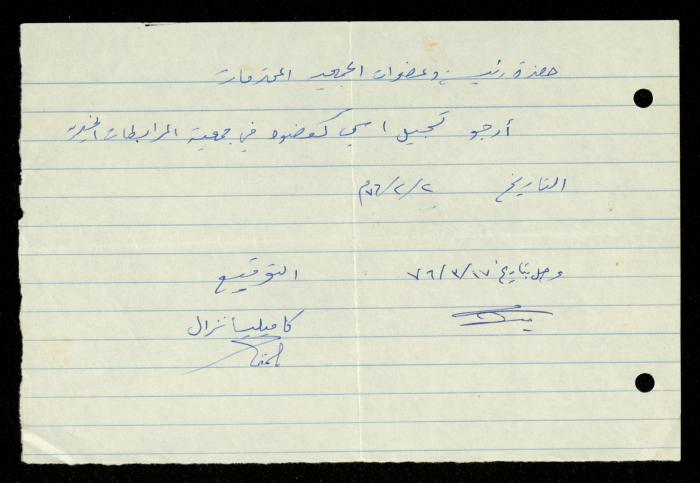 حضرة رئيسة وعضوات الجمعية المحترمات
أرجو تسجيل اسمي كعضوه في جمعية المرابطات الخيرية
التاريخ ٧٦/٢/٢م
وصل بتاريخ ٧٦/٣/١٧
التوقيع
كاميليا نزال